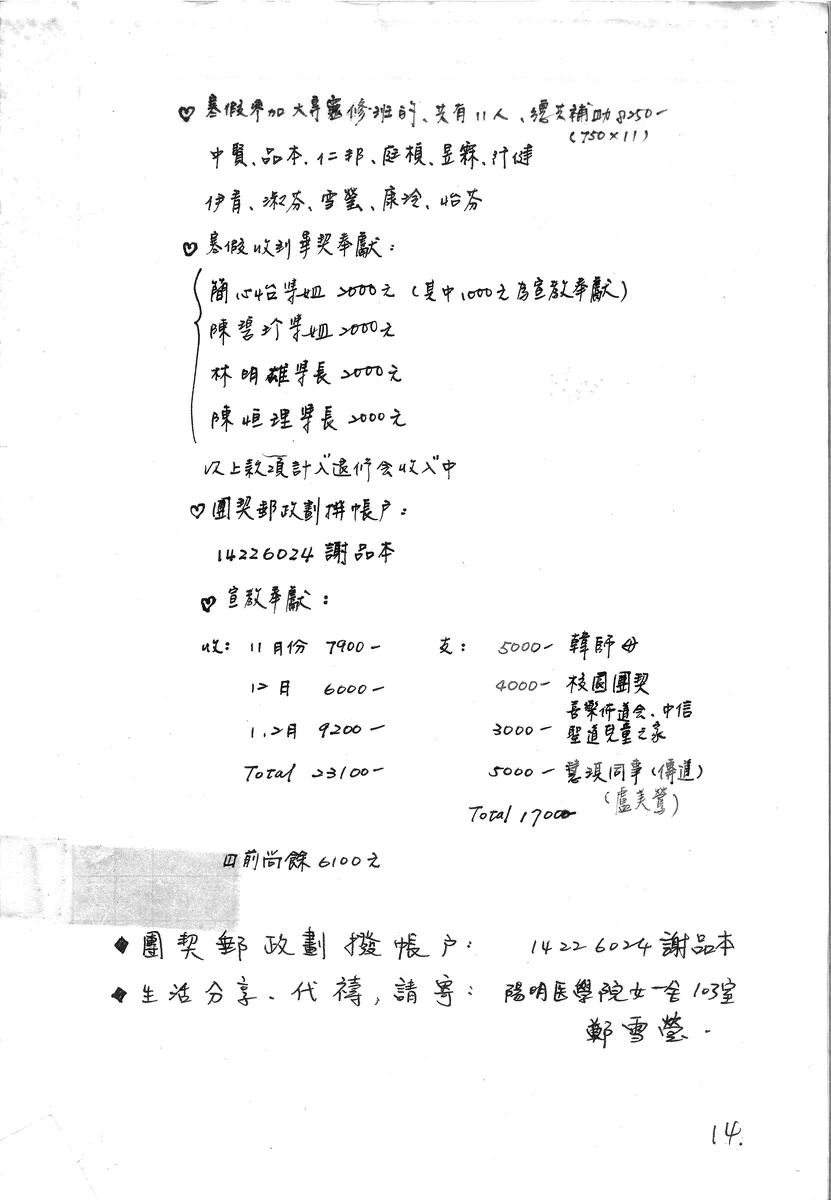 ♡ 寒假參加大專靈修班的、共有11人、總共補助8250-
(750×11)
中賢、品本、仁邦、庭楨、昱霖、行健
伊青、淑芬、雪瑩、康玲、怡芬
♡ 寒假收到畢契奉獻:
簡心怡學姐 2000元 (其中1000元為宣教奉獻)
陳碧珍學姐 2000元
林明雄學長 2000元
陳恒理學長 2000元
以上款項計入"退修会收入"中
♡ 團契郵政劃撥帳户:
14226024 謝品本
♡ 宣教奉獻:
收: 11月份 7900- 支: 5000- 韓師母
12月 6000- 4000- 校園團契
喜樂佈道会、中信
1.2月 9200- 3000- 聖道兒童之家
Total 23100- 5000- 慧瑛同事(傳道)
(盧美鶯)
Total 17000
目前尚餘6100元
◆ 團契郵政劃撥帳户: 14226024 謝品本
◆ 生活分享、代禱,請寄: 陽明医學院女一舍103室
鄭雪瑩.
14.